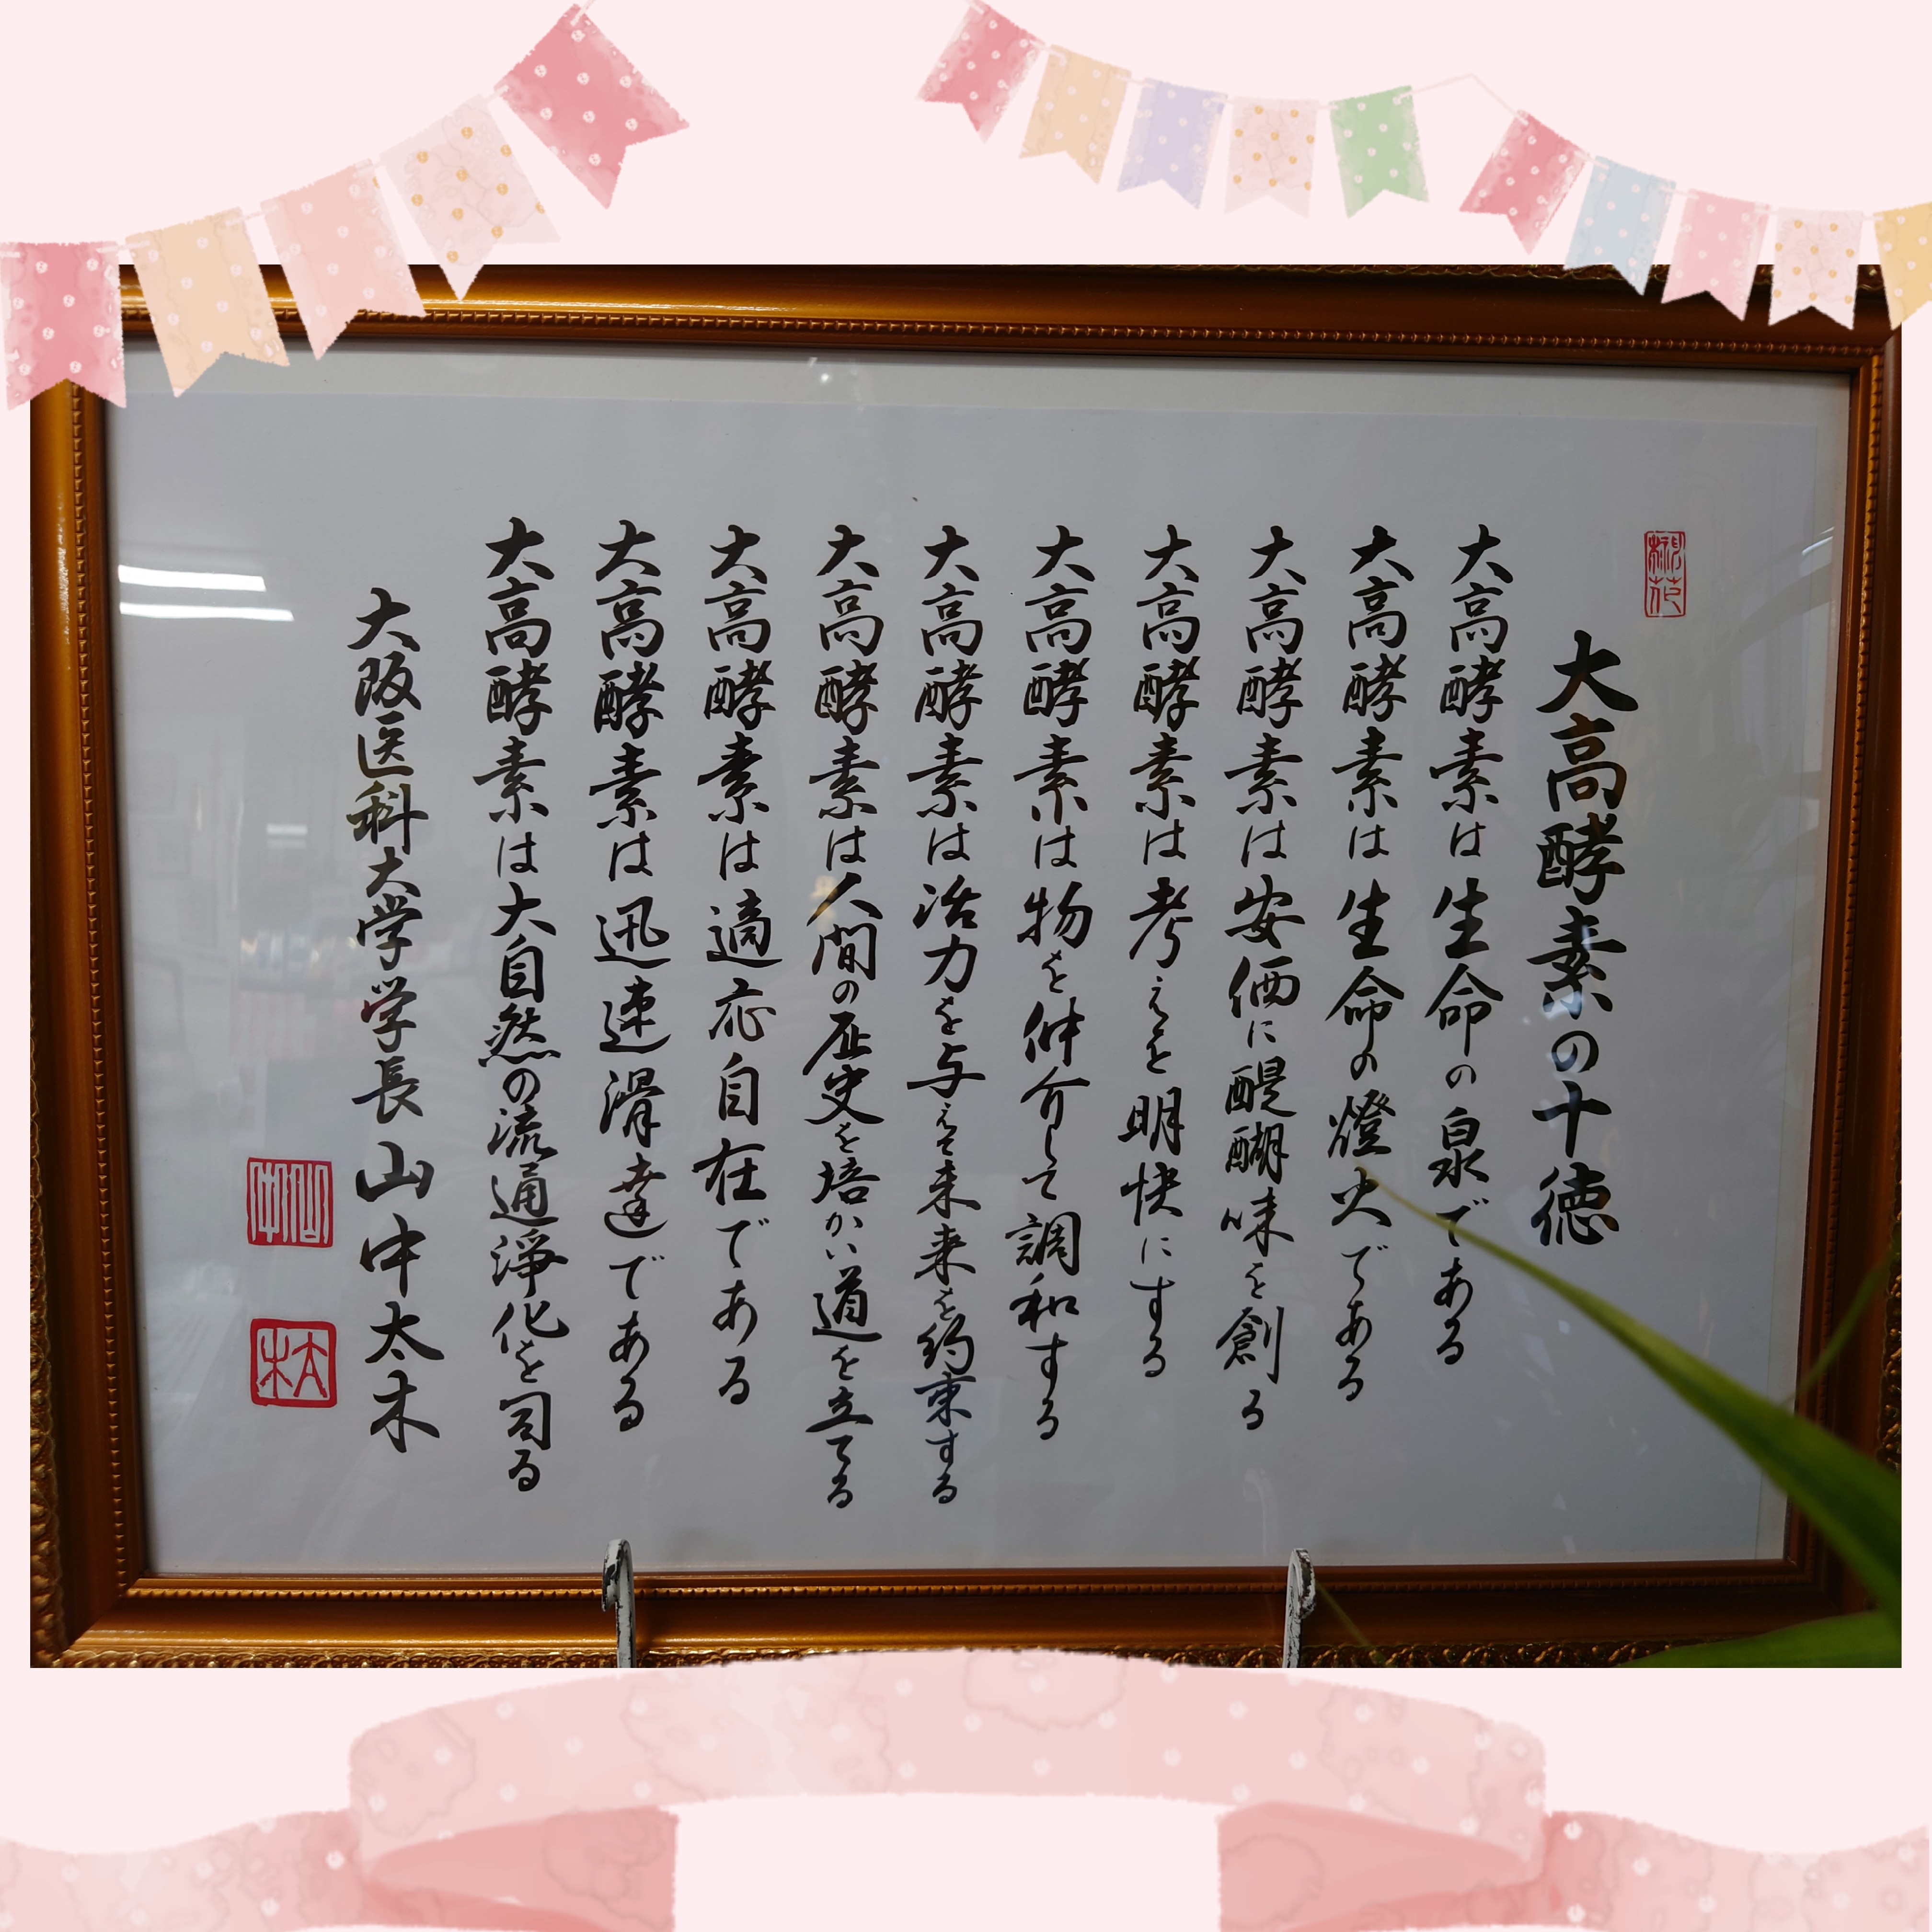 大高酵素の十徳
大高酵素は生命の泉である
大高酵素は生命の燈火である
大高酵素は安価に醍醐味を創る
大高酵素は考えを明快にする
大高酵素は物を仲介して調和する
大高酵素は活力を与え未来を約束する
大高酵素は人間の歴史を培かい道を立てる
大高酵素は適応自在である
大高酵素は迅速滑達である
大高酵素は大自然の流通浄化を司る
大阪医科大学学長 山中太木
山中
太木